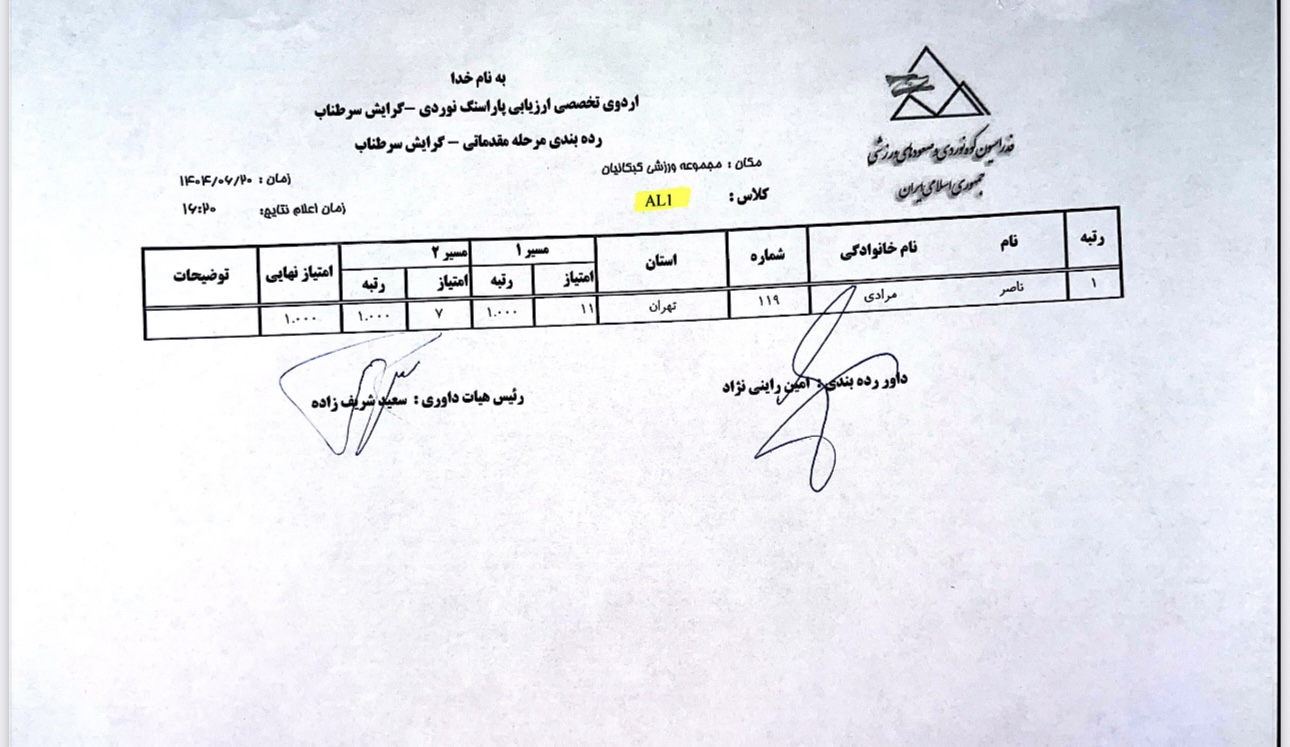 به نام خدا
اردوی تخصصی ارزیابی پاراسنگ نوردی –گرایش سرطناب
رده بندی مرحله مقدماتی – گرایش سرطناب
فدراسیون کوه‌نوردی و صعودهای ورزشی
جمهوری اسلامی ایران
مکان : مجموعه ورزشی کبکانیان
زمان : ۱۴۰۴/۰۶/۲۰
کلاس : AL1
زمان اعلام نتایج: ۱۶:۲۰
رتبه نام نام خانوادگی شماره استان مسیر ۱ مسیر ۲ امتیاز نهایی توضیحات
امتیاز رتبه امتیاز رتبه
۱ ناصر مرادی ۱۱۹ تهران ۱۱ ۱.۰۰۰ ۷ ۱.۰۰۰ ۱.۰۰۰
داور رده بندی : امین راینی نژاد
رئیس هیات داوری : سعید شریف زاده